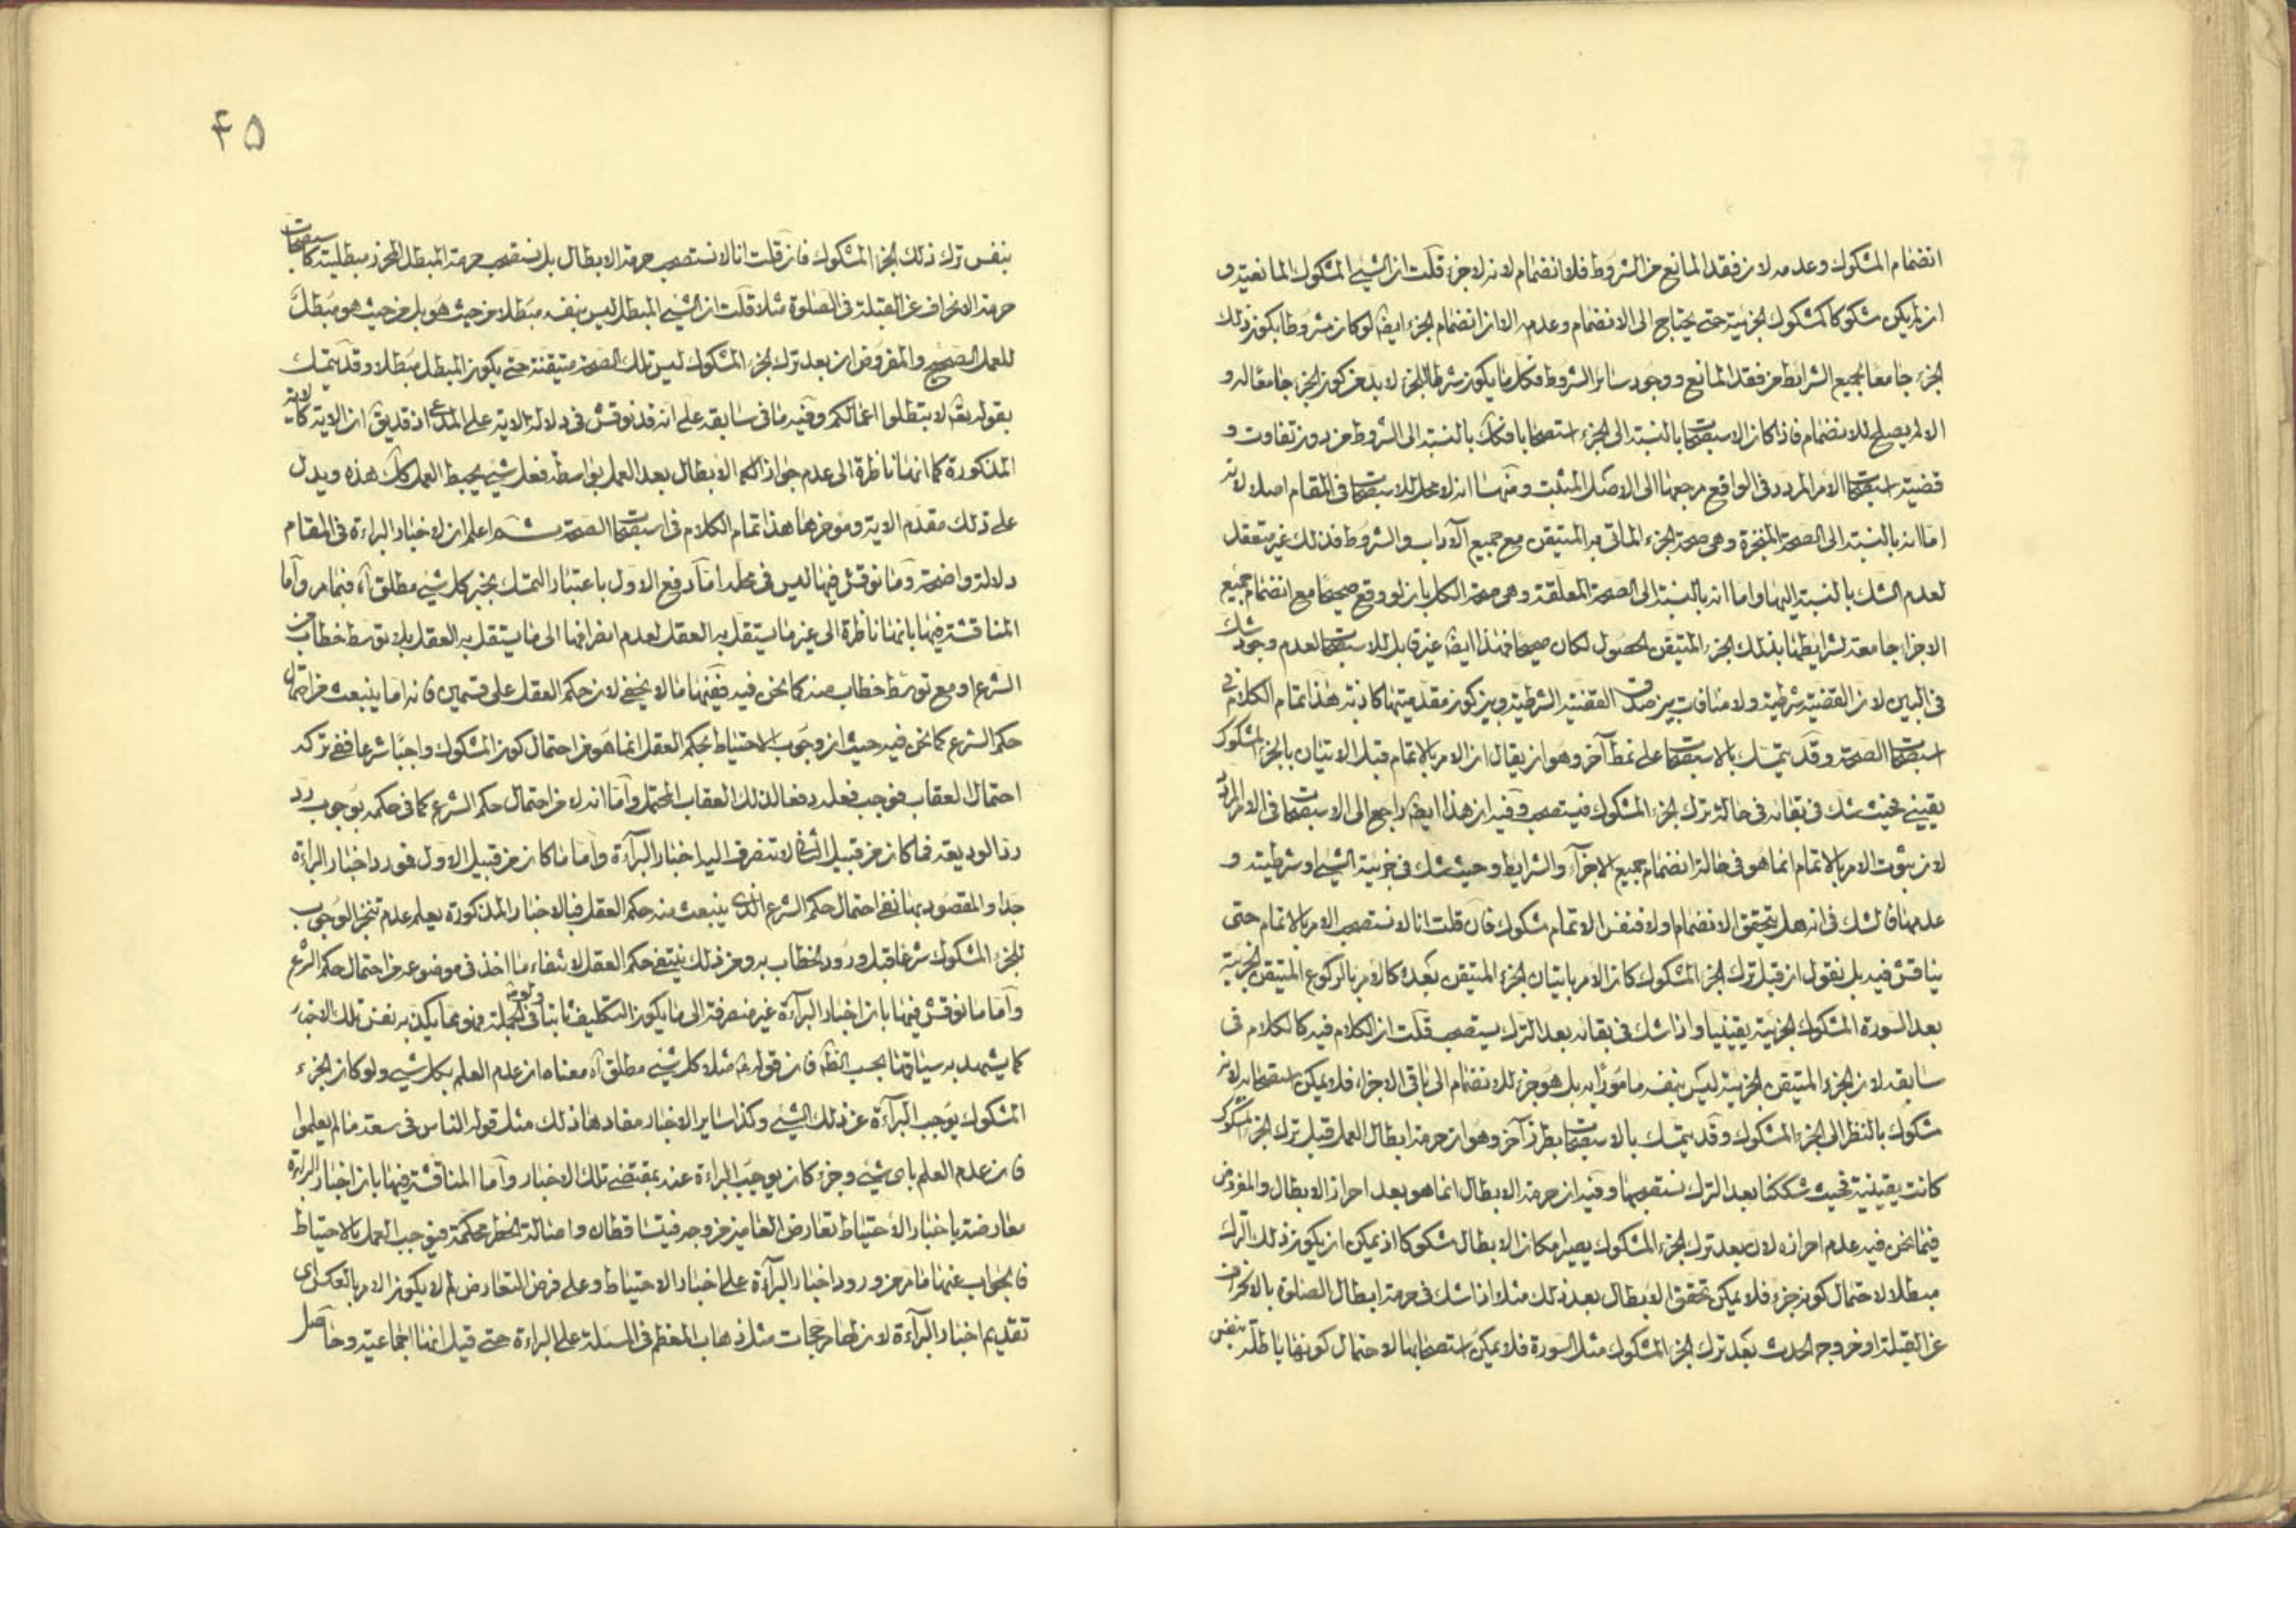 انضمام المشكوك وعدمه لان فقد المانع من الشروط فلا انضمام لانه لاجزء قلت ان الشيئ المشكوك المانعية و
ان لم يكن مشكوكا كمشكوك الجزئية حتى يحتاج الى الانضمام وعدمه الا ان انضمام الجزء ايضا لو كان مشروطا بكون ذلك
الجزء جامعا لجميع الشرائط من فقد المانع ووجود سائر الشروط فكل ما يكون شرطا للجزء لابد من كون الجزء جامعا له و
الا لم يصلح للانضمام فاذا كان الاستصحاب بالنسبة الى الجزء استصحابا فكك بالنسبة الى الشروط من دون تفاوت و
قضية استصحاب الامر المردد في الواقع مرجعها الى الاصل المثبت ومنها انه لا محل للاستصحاب في المقام اصلا لانه
اما انه بالنسبة الى الصحة المنجزة وهى صحة الجزء الماتى به المتيقن مع جميع الآداب والشروط فذلك غير متعقل
لعدم الشك بالنسبة اليها واما انه بالنسبة الى الصحة المعلقة وهى صحة الكل بان لو وقع صحيحا مع انضمام جميع
الاجزاء جامعة لشرايطها بذلك الجزء المتيقن الحصول لكان صحيحا فهذا ايضا غير قابل للاستصحاب لعدم وجود شك
في البين لان القضية شرطية ولا منافات بين صدق القضية الشرطية وبين كون مقدميتها كاذبة هذا تمام الكلام في
استصحاب الصحة وقد يتمسك بالاستصحاب على نمط آخر وهو ان يقال ان الامر بالاتمام قبل الاتيان بالجزء المشكوك
يقينى فحيث شك في بقائه في حالة ترك الجزء المشكوك فيستصحب وفيه ان هذا ايضا راجع الى الاستصحاب في الامر المردد
لان ثبوت الامر بالاتمام انما هو في حالة انضمام جميع الاجزآء والشرايط وحيث شك في جزئية الشيئ او شرطيته و
عدمها فالشك في انه هل يتحقق الانضمام اولا فنفس الاتمام مشكوك فان قلت انا لا نستصحب الامر بالاتمام حتى
يناقش فيه بل نقول ان قبل ترك الجزء المشكوك كان الامر باتيان الجزء المتيقن بعده كالامر بالركوع المتيقن الجزئية
بعد السورة المشكوك الجزئية يقينيا واذا شك في بقائه بعد الترك يستصحب قلت ان الكلام فيه كالكلام في
سابقه لان الجزء المتيقن الجزئية ليس بنفسه مامورا به بل هو جزء للانضمام الى باقى الاجزاء فلا يمكن استصحابه لانه
مشكوك بالنظر الى الجزء المشكوك وقد يتمسك بالاستصحاب بطرز آخر وهو ان حرمة ابطال العمل قبل ترك الجزء المشكوك
كانت يقينية فحيث شككنا بعد الترك نستصحبها وفيه ان حرمة الابطال انما هو بعد احراز الابطال والمفروض
فيما نحن فيه عدم احرازه لان بعد ترك الجزء المشكوك يصير مكان الابطال مشكوكا اذ يمكن ان يكون ذلك الترك
مبطلا لاحتمال كونه جزء فلا يمكن تحقق الابطال بعد ذلك مثلا اذا شك في حرمة ابطال الصلوة بالانحراف
عن القبلة او خروجه الحدث بعد ترك الجزء المشكوك مثل السورة فلا يمكن استصحابها لاحتمال كونها باطلة بنفس
۴۵
بنفس ترك ذلك الجزء المشكوك فان قلت انا لا نستصحب حرمة الابطال بل نستصحب حرمة المبطل المحرز مبطليته كاستصحاب
حرمة الانحراف عن القبلة في الصلوة مثلا قلت ان الشيئ المبطل ليس بنفسه مبطلا من حيث هو بل من حيث هو مبطل
للعمل الصحيح والمفروض ان بعد ترك الجزء المشكوك ليس تلك الصحة متيقنة حتى يكون المبطل مبطلا وقد يتمسك
بقوله تعالى لا تبطلوا اعمالكم وفيه ما في سابقه على انه قد نوقش في دلالة الاية على المدعى اذ قد يق ان الاية كالاية
المذكورة كما انها ناظرة الى عدم جواز الابطال بعد العمل بواسطة فعل شيئ يحبط العمل كك هذه ويدل
على ذلك مقدم الاية وموخرها هذا تمام الكلام في استصحاب الصحة ثم اعلم ان لاخبار البراءة في المقام
دلالة واضحة وما نوقش فيها ليس في محله اما دفع الاول باعتبار التمسك بخبر كل شيئ مطلق آه فبما مر واما
المناقشة فيها بانها ناظرة الى غير ما يستقل به العقل لعدم انصرافها الى ما يستقل به العقل بلا توسط خطاب من
الشرع او مع توسط خطاب منه كما نحن فيه ففيها ما لا يخفى لان حكم العقل على قسمين فانه اما ينبعث من احتمال
حكم الشرع كما نحن فيه حيث ان وجوب الاحتياط بحكم العقل انما هو من احتمال كون المشكوك واجبا شرعا ففى تركه
احتمال العقاب فوجب فعله دفعا لذلك العقاب المحتمل واما انه لا من احتمال حكم الشرع كما في حكمه بوجوب رد
رد الوديعة فما كان من قبيل الثانى لا تنصرف اليه اخبار البرآءة واما ما كان من قبيل الاول فمورد اخبار البراءة
جدا والمقصود بها نفى احتمال حكم الشرع الذى ينبعث منه حكم العقل فبالاخبار المذكورة يعلم عدم تنجز الوجوب
للجزء المشكوك شرعا قبل ورود الخطاب به ومن ذلك ينتفى حكم العقل لانتفاء ما اخذ في موضوعه من احتمال حكم الشرع
واما ما نوقش فيها بان اخبار البرآءة غير منصرفة الى ما يكون التكليف ثابتا في الجملة فهو مما يكذبه نفس تلك الاخبار
كما يشهد به سياقها بحسب الظاهر فان قوله مثلا كل شيئ مطلق آه معناه ان عدم العلم بكل شيئ ولو كان الجزء
المشكوك يوجب البرآءة عن ذلك الشيئ وكذا ساير الاخبار مفادها ذلك مثل قوله الناس في سعة ما لم يعلموا
فان عدم العلم باى شيئ وجزء كان يوجب البراءة عنه بمقتضى تلك الاخبار واما المناقشة فيها بان اخبار البراءة
معارضة باخبار الاحتياط تعارض العامين من وجه فيتساقطان واصالة الحظر محكمة فيوجب العمل بالاحتياط
فالجواب عنها ما مر من ورود اخبار البرآءة على اخبار الاحتياط وعلى فرض التعارض لم لا يكون الامر بالعكس اى
تقديم اخبار البرآءة لان لها مرجحات مثل ذهاب المعظم في المسئلة على البراءة حتى قيل انها اجماعية وحاصل